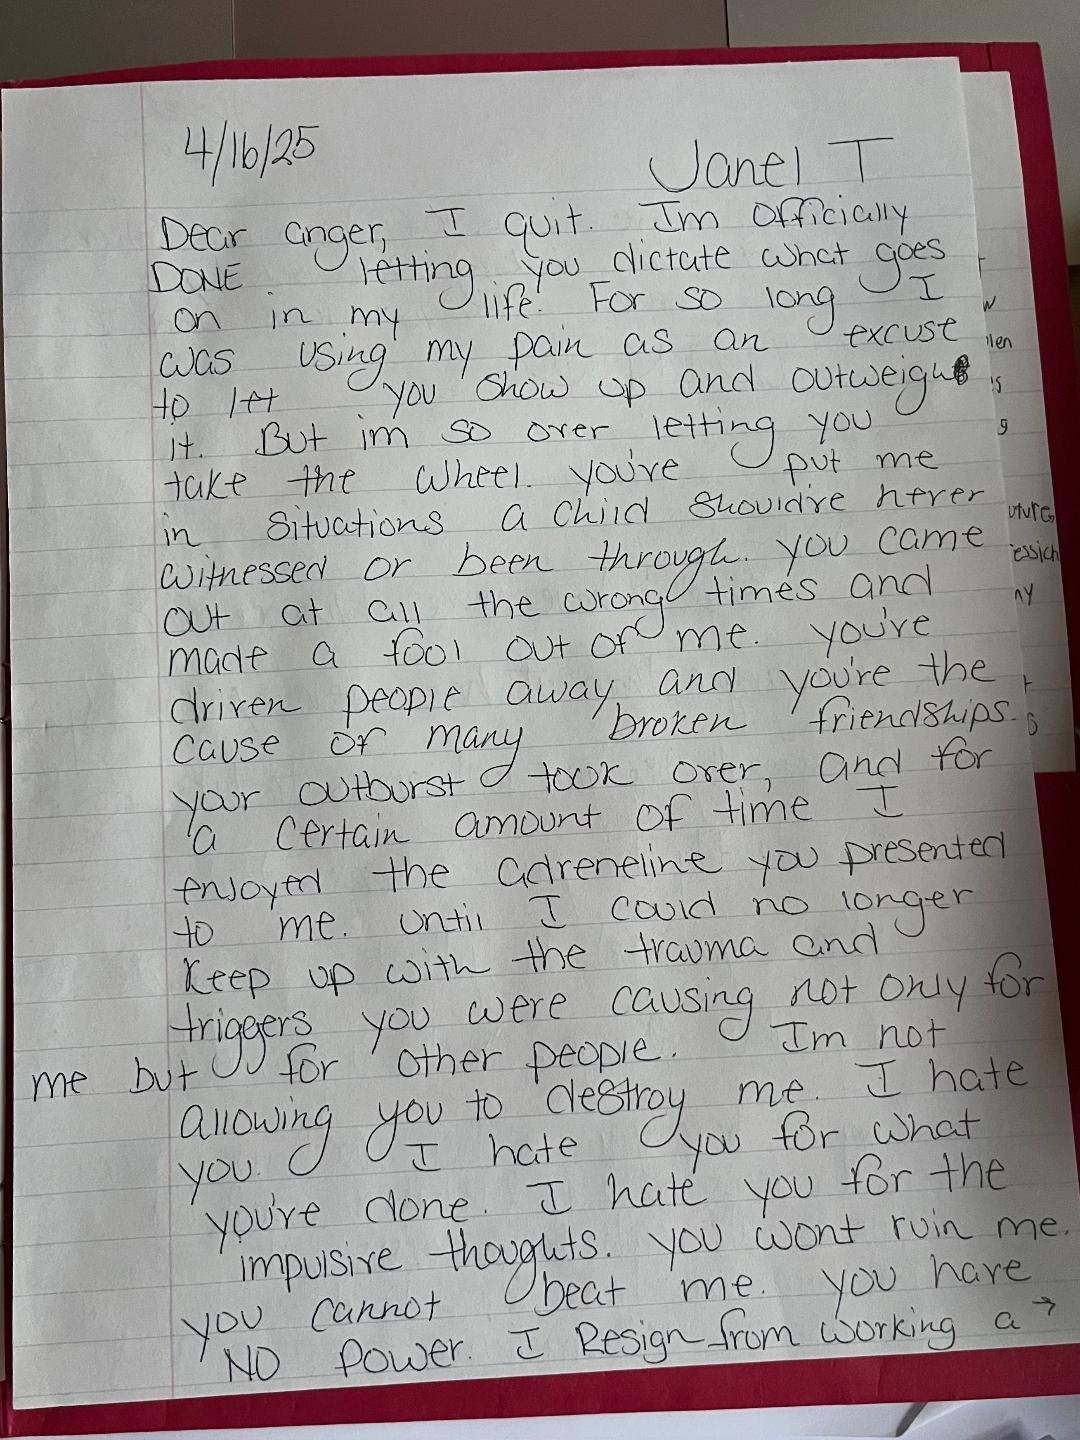 4/16/25
Janel T
Dear anger, I quit. Im Officially
DONE letting you dictate what goes
on in my life. For so long I
was using my pain as an excuse
to let you show up and outweigh
it. But im so over letting you
take the wheel. you're put me
in situations a child should've never
witnessed or been through. you came
out at all the wrong times and
made a fool out of me. you've
driven people away and you're the
cause of many broken friendships.
your outburst took over, and for
a certain amount of time I
enjoyed the adreneline you presented
to me. Until I could no longer
keep up with the trauma and
triggers you were causing not only for
me but for other people. Im not
allowing you to destroy me. I hate
you. I hate you for what
you've done. I hate you for the
impulsive thoughts. you wont ruin me.
you cannot beat me. you have
NO power. I Resign from working a →
w
llen
is
g
uture,
essich
ny